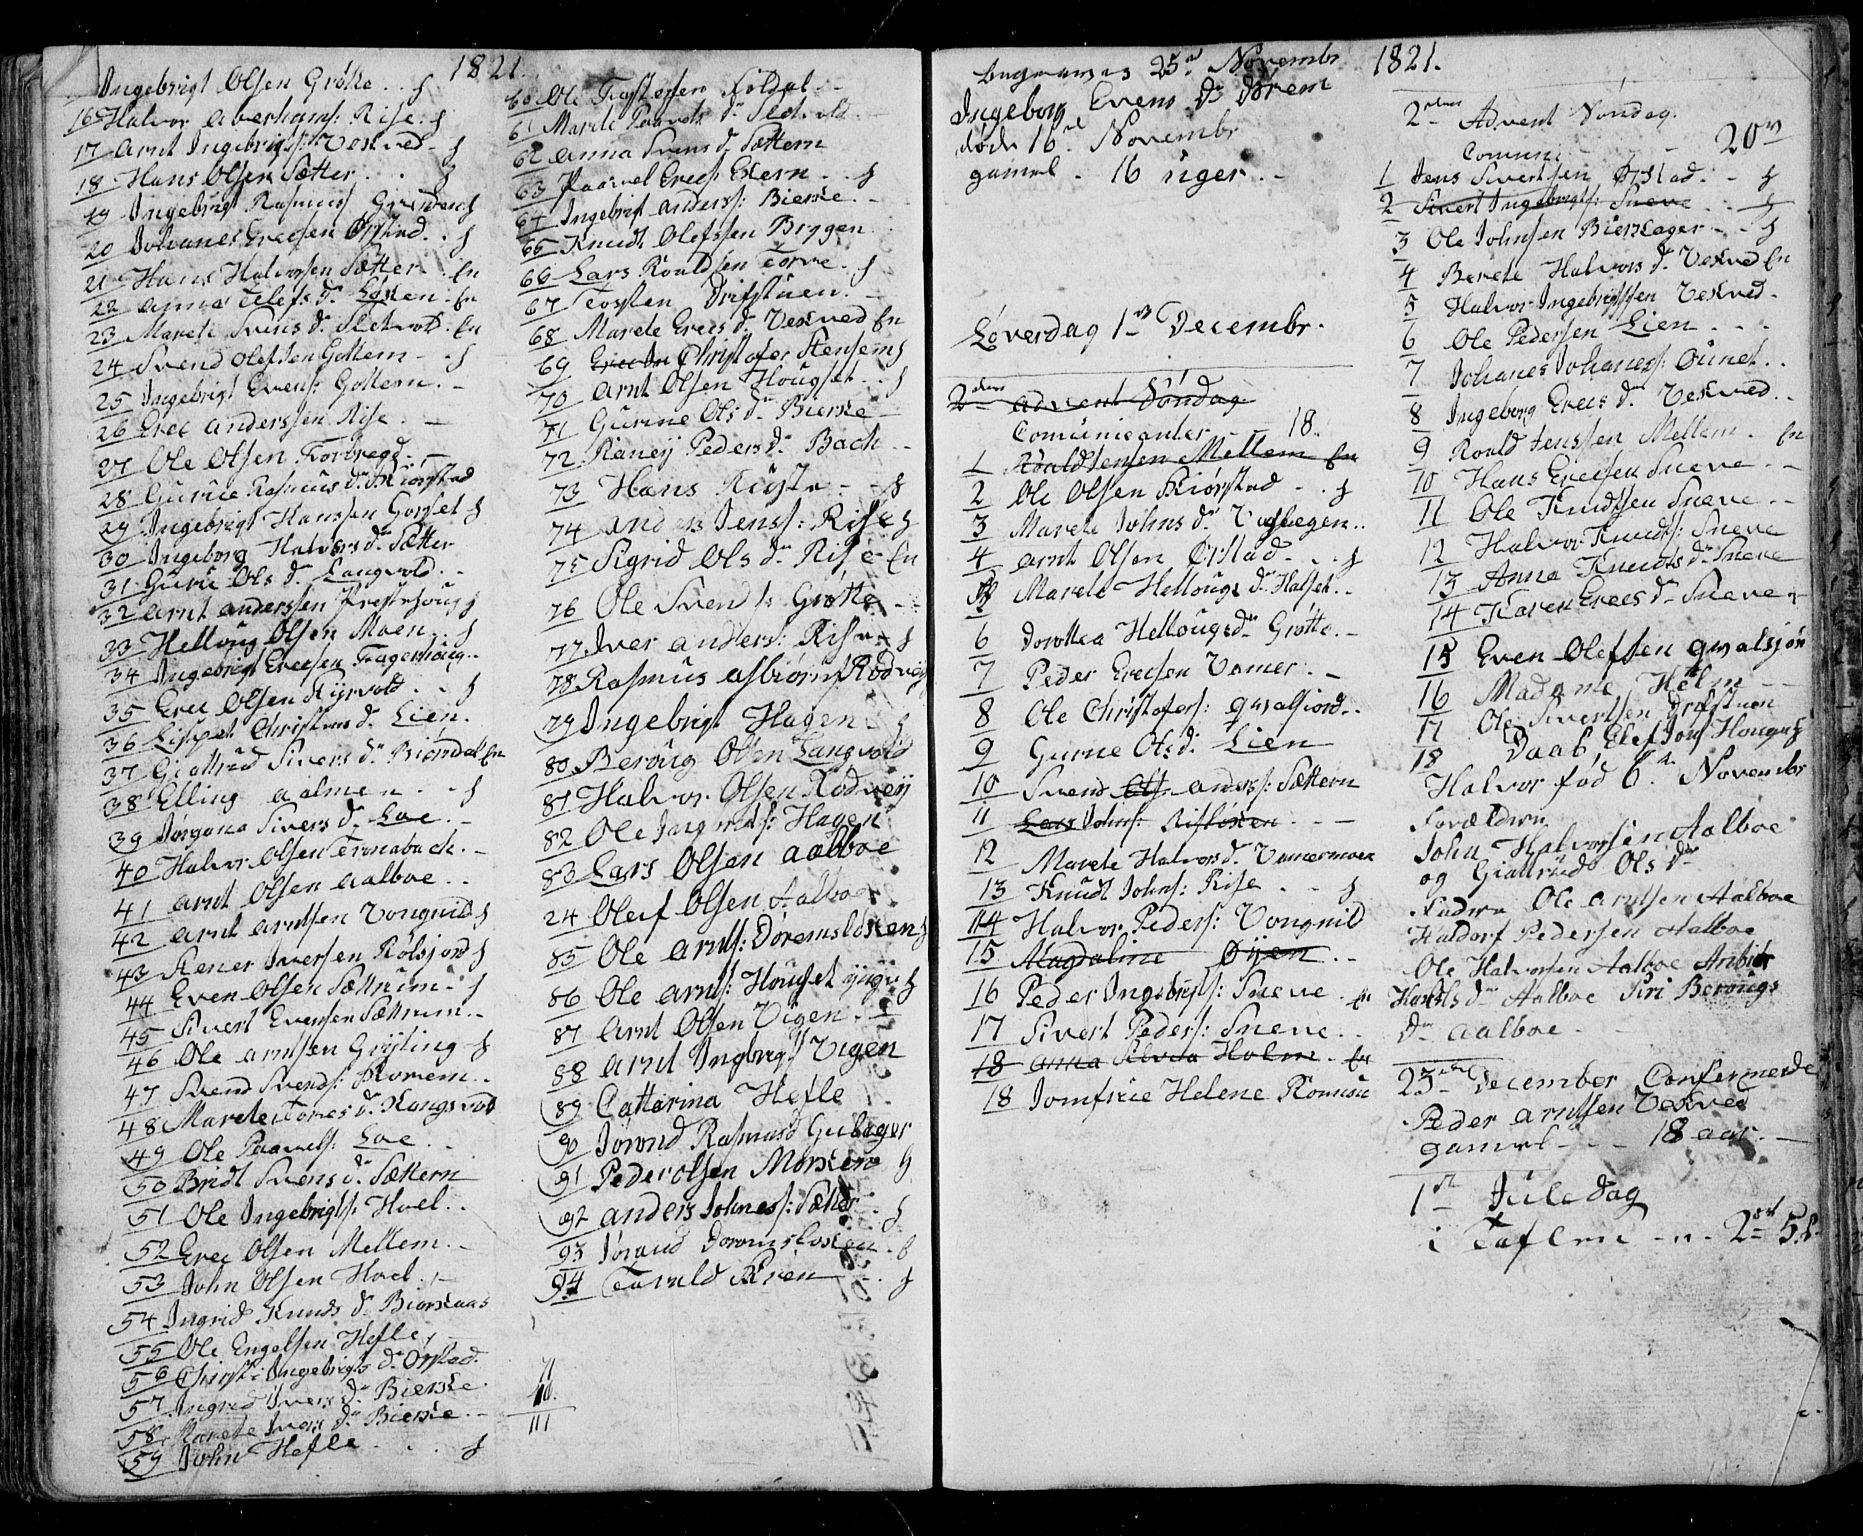 1821.
Ingebrigt Olsen Grötte . . f
16 Halvor Aberhams: Rise. f
17 Arnt Ingebrigts: Vekved - f
18 Hans Olsen Sætter . . f
19 Ingebrigt Rasmuss f
20 Johanes Erecsen Örstad . . f
21 Hans Halvorsen Sætter . En
22 Anna Elefs Dr Löken. En
23 Marete Svens Dr Sletvold. En
24 Svend Olefsen Gottem - . f
25 Ingebrigt Evens: Gottem. -
26 Erec Anderssen Rise. . -
27 Ole Olsen Forbregd. -
28 Gurue Rasmus Dr Kiörstad
29 Ingebrigt Hanssen Gorset f
30 Ingeborg Halvors Dr Sætter
31 Gurue Ols Dr Langvold. . -
32 Arnt Anderssen f
33 Helloug Olsen Moen. . f
34 Ingebrigt Erecsen Fagerhoug. .
35 Erec Olsen . . f
36 Lispet Christens Dr Lien.
37 Giattrud Sivers Dr Biörndal En
38 Elling Aalmen . . f
39 Jörgana Sivers Dr Loe. -
40 Halvor Olsen Tronabach. -
41 Arnt Olsen Aalboe. .
42 Arnt Arntsen Vongnild f
43 Stener Iversen f
44 Even Olsen Sættrum - f
45 Sivert Evensen Sættrum. .
46 Ole Arntsen Gröting f
47 Svend Svends: Romem. .
48 Marete Tores Dr Kongsvold
49 Ole Paavels: Loe. . -
50 Bridt Svens Dr Sættern
51 Ole Ingebrigts. Hoel. .
52 Erec Olsen Mellem. -
53 John Olsen Hoel. -
54 Ingrid Knuds Dr Biorkaas
55 Ole Engelsen Hefle,
56 Ingebrigts Dr Örstad.
57 Ingrid Ivers Dr Bierke.
58 Marete Ivers Dr Bierke. -
59 John Hefle . . . f
60 Ole Tostensen Foldal . -
61 Marete Paavels Dr Sletvold. -
62 Anna Svens Dr Sættern
63 Paavel Erecs: . . f
64 Ingebrigt Anderss: Bierke. -
65 Knudt Olefssen Bryggen
66 Lars Roaldsen Torve. f
67 Tosten Drifstuen. -
68 Marete Erecs Dr Vekved En
69 Christofer Stensem f
70 Arnt Olsen Hougset . . f
71 Gurine Ols Dr Bierke
72 Raney Peders Dr Bach . -
73 Hans . . f
74 Anders Jenss: Rise f
75 Sigrid Ols Dr Rise En
76 Ole Svends: Grötte - -
77 Iver Anders: Rise - f
78 Rasmus Asbiörns
79 Ingebrigt Hagen . f
80 Beroug Olsen Langvold
81 Halvor Olsen
82 Ole Hagen
83 Lars Olsen Aalboe
24 Oluf Olsen Aalboe
85 Ole Arnts: Döremslöken f
86 Ole Arnts: Hougset f
87 Arnt Olsen Vigen. . -
88 Arnt Ingbrigts Vigen
89 Cattarina Hefle
90 Rasmusd
91 Peder Olsen f
92 Anders Johness: Sætter f
93 . f
94 . f
71
40.
111
25d Novembr 1821.
Ingeborg Evens Dr Dörem
döde 16d Novembr
gamel - 16 uger. -
Löverdag 1st Decembr.
2den Advent Söndag
Comunicanter - - 18.
1 Roald Jensen Mellem En
2 Ole Olsen Kiörstad - . f
3 Marete Johns Dr . .
4 Arnt Olsen Örstad - . . f
5 Marete Hellougs Dr Halset. .
6 Dorottea Hellougs Dr Grötte. -
7 Peder Erecsen Vamer. -
8 Ole Christofers: Qvalsiord. .
9 Gurue Ols Dr Lien
10 Svend Ols Anders: Sættern
11 Lars Johns: Rislöken . - -
12 Marete Halvors Dr Vamermoen
13 Knudt Johns: Rise . . f
14 Halvor Peders: Vongnild
15 Magdaline Öyen . -
16 Peder Ingebrigts: Sneve . En
17 Sivert Peders: Sneve. .
18 Anna Holm . En
18 Jomfrue Helene
2den Advent Söndag.
Comuni - - - 20ty
1 Jens Sivertsen Örstad. - f
2 Sivert Ingebrigts: Sneve . . f
3 Ole Johnsen Bierkager - . f
4 Berete Halvors Dr Vekved En
5 Halvor Ingebrigtsen Vekved -
6 Ole Pedersen Lien . . .
7 Johanes Johaness: Ounet. .
8 Ingeborg Erecs Dr Vekved. .
9 Roald Jenssen Mellem . En
10 Hans Erecsen Sneve. -
11 Ole Knudtsen Sneve. -
12 Halvor Knudts: Sneve
13 Anna Knudts Dr Sneve
14 Karen Erecs Dr Sneve
15 Even Olefsen Qvalsjör
16 Madame Helm -
17 Ole Sivertsen Drifstuen
18 Daab
Halvor fod 6te Novembr
Forældren
John Halvorsen Aalboe
og Giattrud Ols Dr
Fadre Ole Arntsen Aalboe
Haldorf Pedersen Aalboe
Ole Halvorsen Aalboe
Dr Aalboe Siri Berougs
Dr Aalboe -
23 December Confermerede
Peder Arntsen Vekved
gamel - - - 18 aar. -
1st Juledag
i Taflen - " - 2rd 5 s.